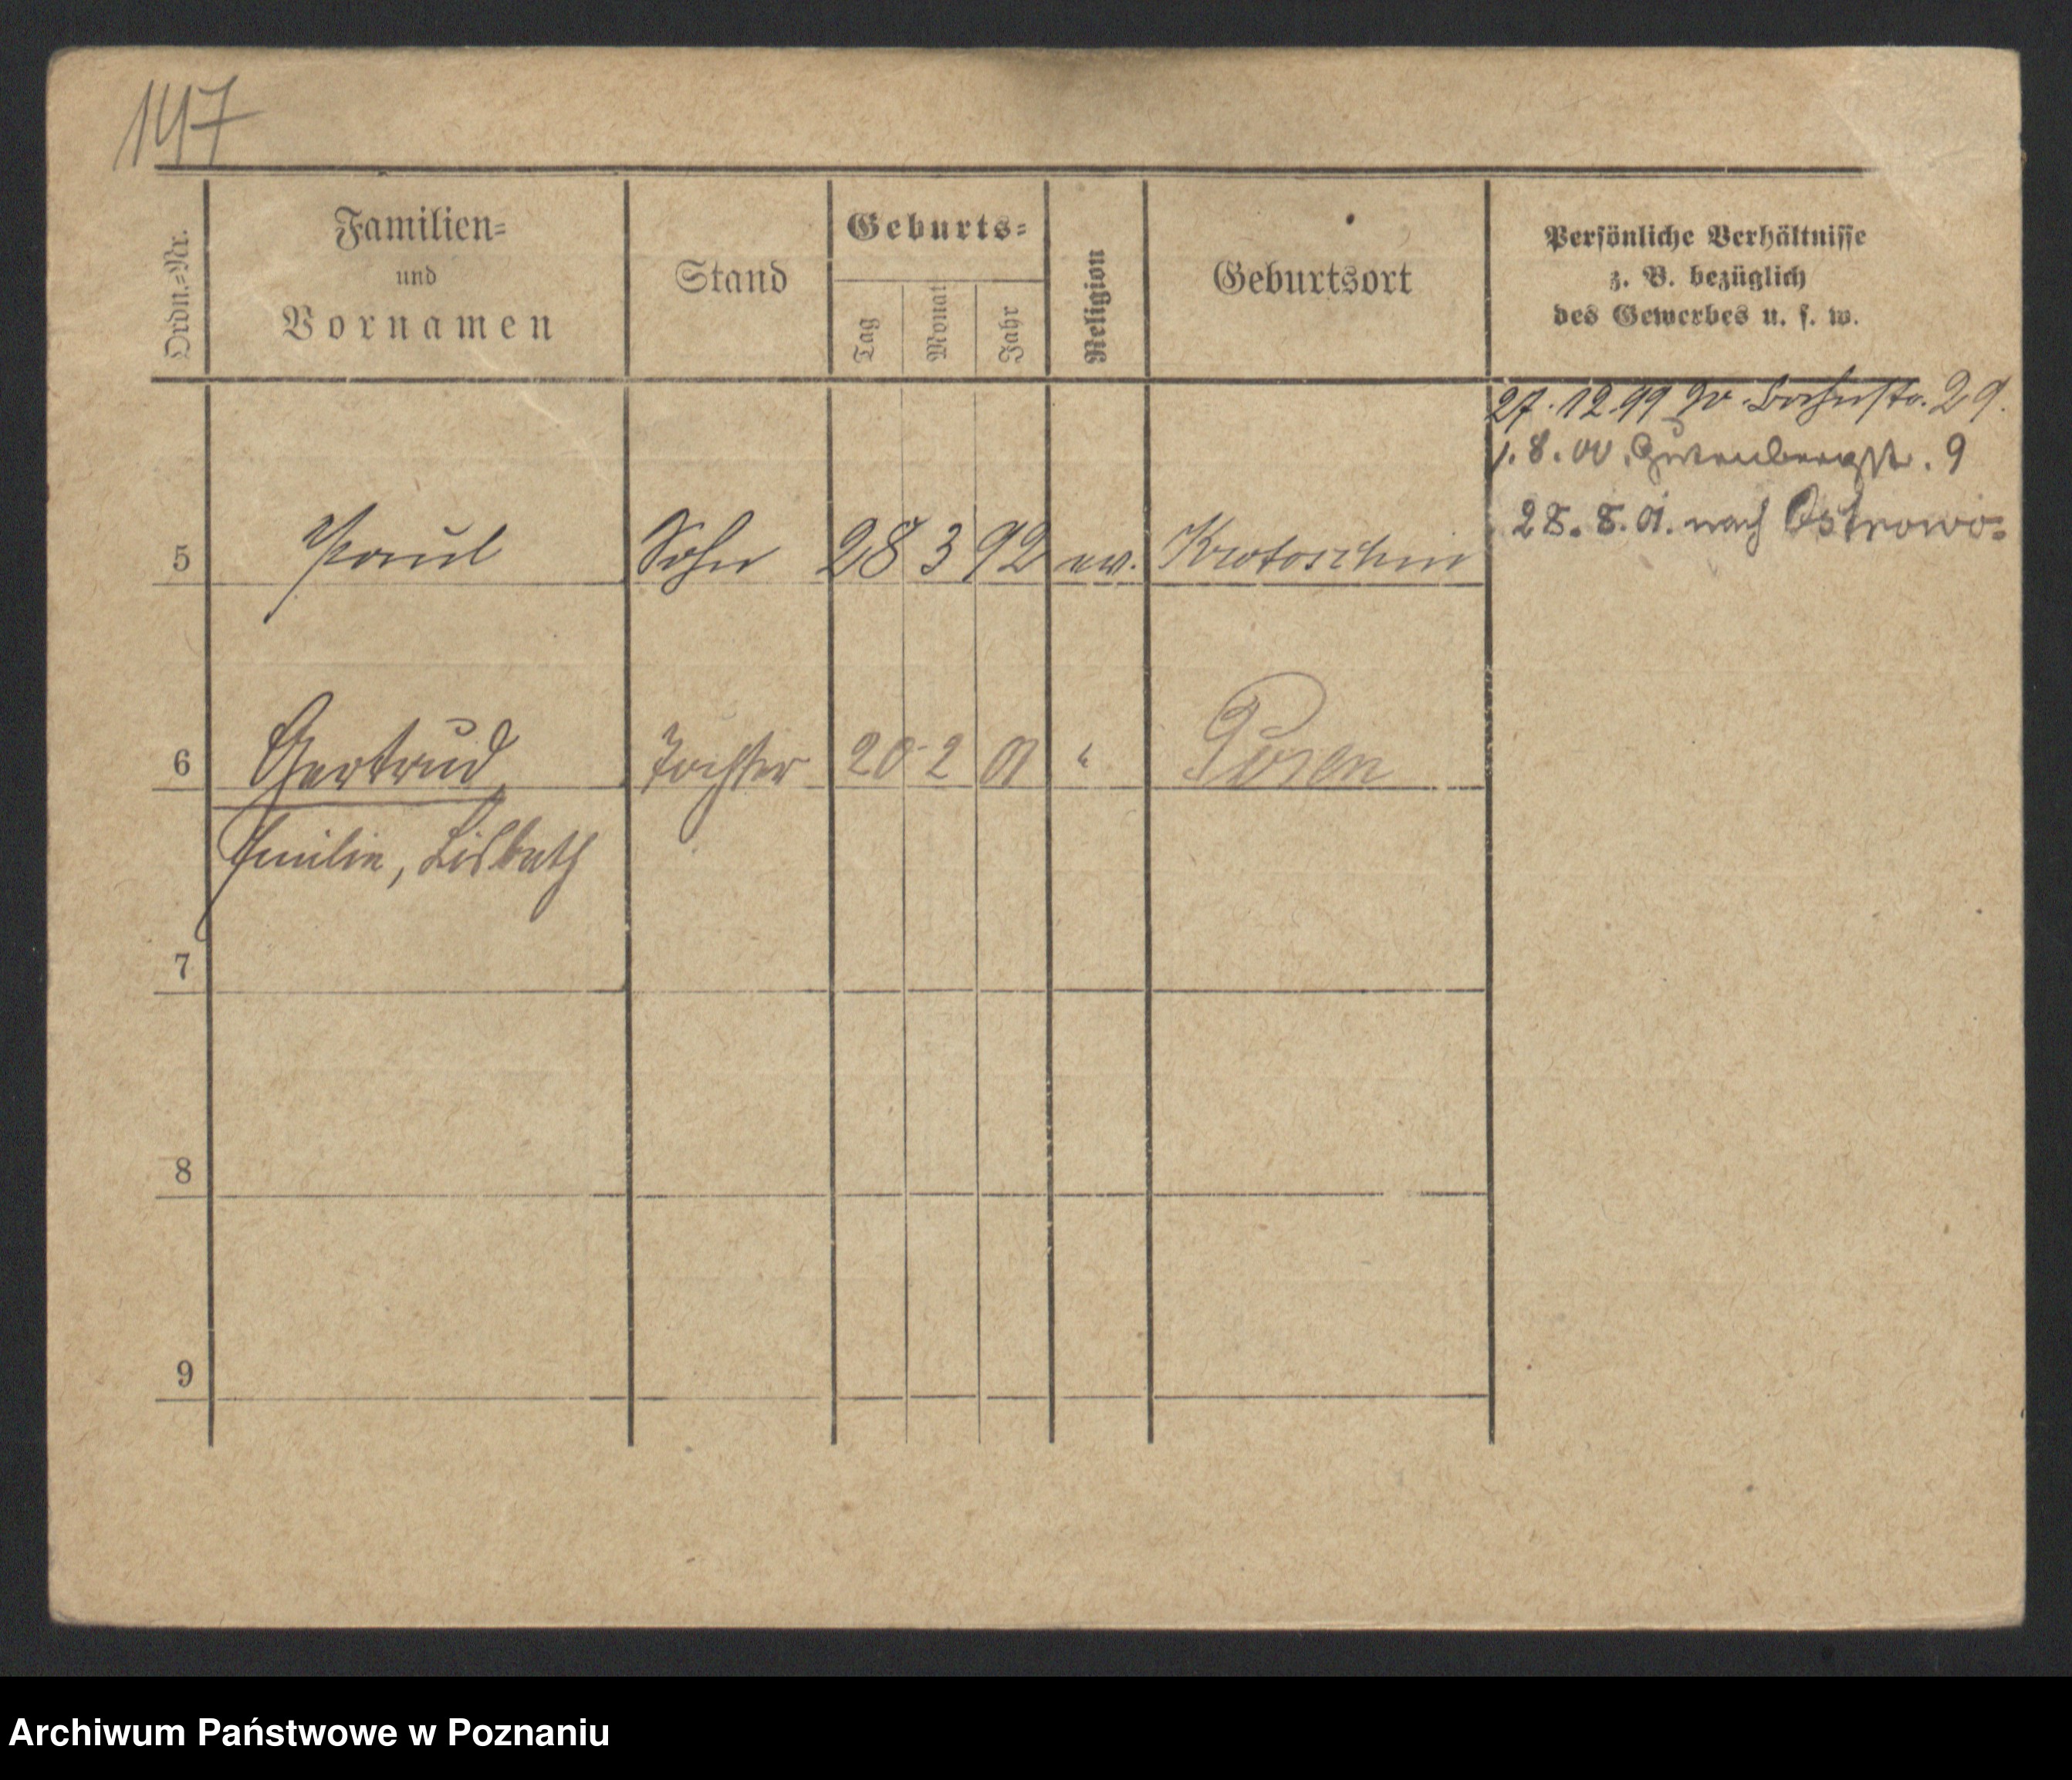 147
Ordn.=Nr.
Familien=
und
Vornamen
Stand
Geburts=
Tag
Monat
Jahr
Religion
Geburtsort
Persönliche Verhältnisse
z. B. bezüglich
des Gewerbes u. s. w.
27. 12 99 29.
1. 8. 00. Gutenbergstr. 9
28. 8. 01. nach Ostrowo.
5 Paul Sohn 28 3 92 ev. Krotoschin
6 Gertrud Tochter 20 2 01 " Posen
Emilie, Lisbeth
7
8
9
Archiwum Państwowe w Poznaniu